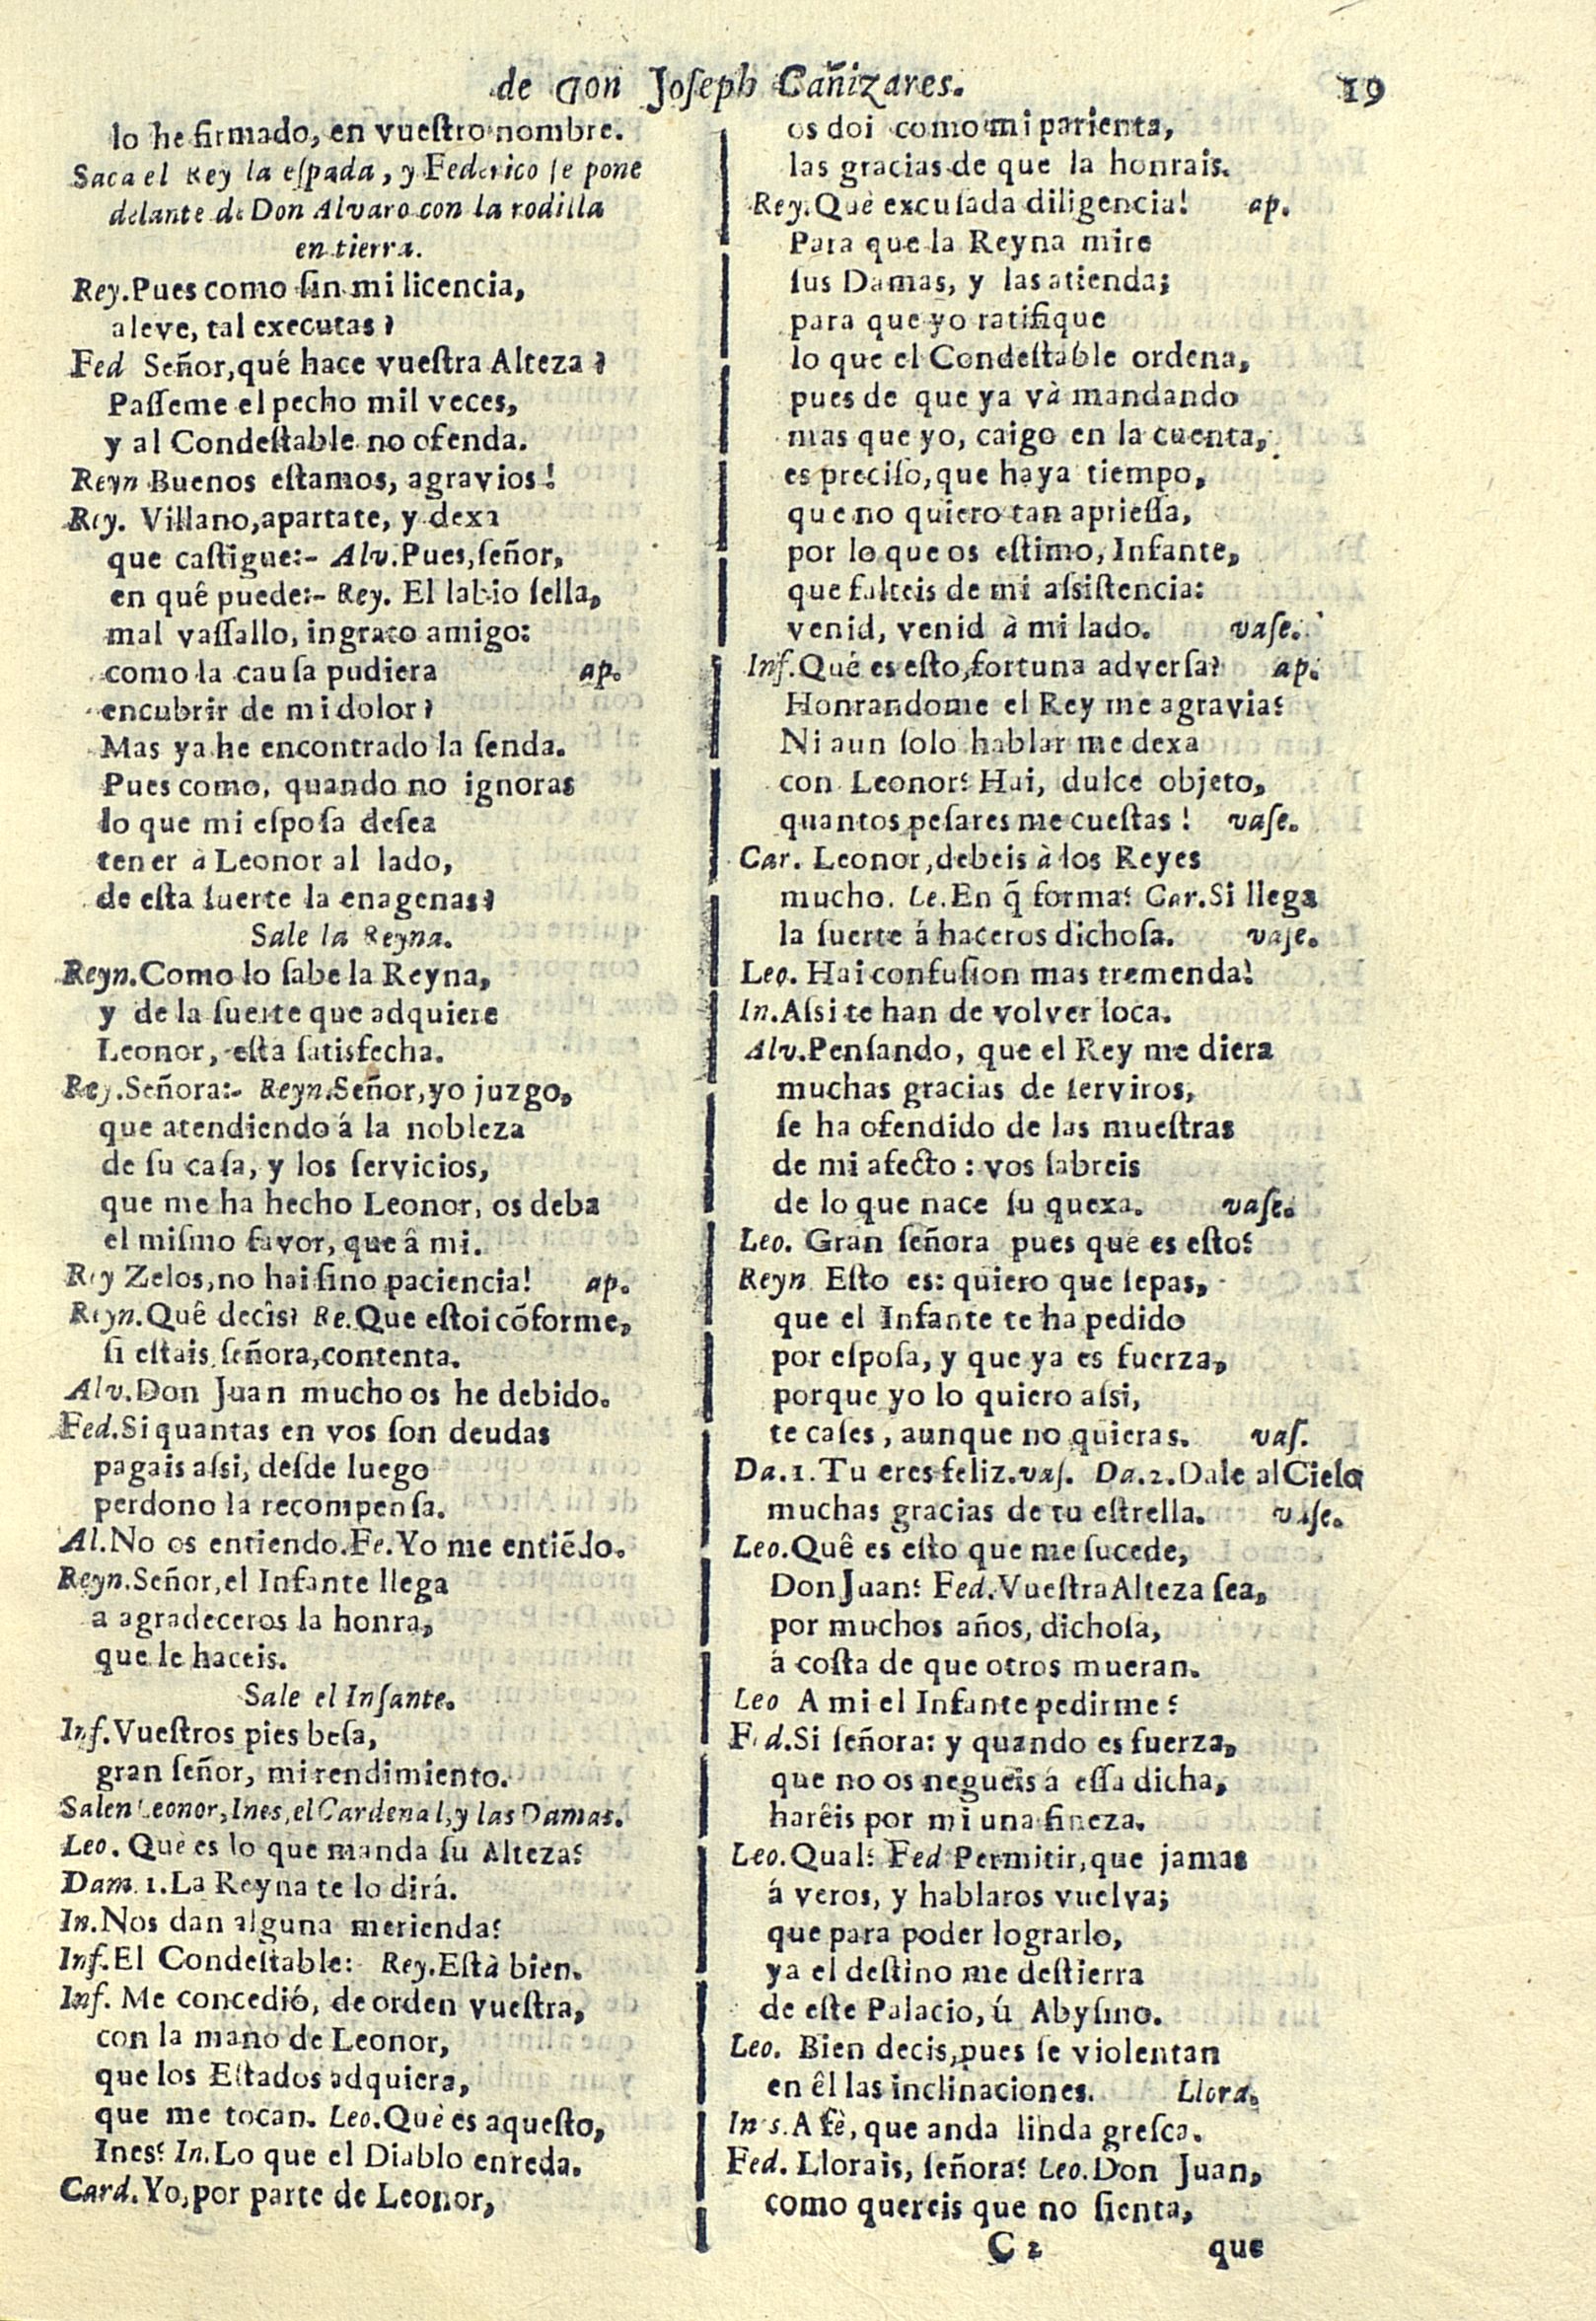 de Don Joseph Cañizares.
19
lo he firmado, en vuestro nombre.
Saca el Rey la espada, y Federico se pone
delante de Don Alvaro con la rodilla
en tierra.
Rey. Pues como sin mi licencia,
aleve, tal executas?
Fed Señor, qué hace vuestra Alteza?
Passeme el pecho mil veces,
y al Condestable no ofenda.
Reyn Buenos estamos, agravios!
Rey. Villano, apartate, y dexa
que castigue:- Alv. Pues, señor,
en quê puede:- Rey. El labio sella,
mal vassallo, ingrato amigo:
como la causa pudiera ap.
encubrir de mi dolor?
Mas ya he encontrado la senda.
Pues como, quando no ignoras
lo que mi esposa desea
tener à Leonor al lado,
de esta suerte la enagenas?
Sale la Reyna.
Reyn. Como lo sabe la Reyna,
y de la suerte que adquiere
Leonor, esta satisfecha.
Rey. Señora:- Reyn. Señor, yo juzgo,
que atendiendo á la nobleza
de su casa, y los servicios,
que me ha hecho Leonor, os deba
el mismo favor, que â mi.
Rey Zelos, no hai sino paciencia! ap.
Reyn. Quê decis? Re. Que estoi cõforme,
si estais, señora, contenta.
Alv. Don Juan mucho os he debido.
Fed. Si quantas en vos son deudas
pagais assi, desde luego
perdono la recompensa.
Al. No os entiendo. Fe. Yo me entiẽdo.
Reyn. Señor, el Infante llega
a agradeceros la honra,
que le haceis.
Sale el Infante.
Inf. Vuestros pies besa,
gran señor, mi rendimiento.
Salen Leonor, Ines, el Cardenal, y las Damas.
Leo. Què es lo que manda su Alteza?
Dam. 1. La Reyna te lo dirá.
In. Nos dan alguna merienda?
Inf. El Condestable: Rey. Està bien.
Inf. Me concedió, de orden vuestra,
con la mano de Leonor,
que los Estados adquiera,
que me tocan. Leo. Què es aquesto,
Ines? In. Lo que el Diablo enreda.
Card. Yo, por parte de Leonor,
os doi como mi parienta,
las gracias de que la honrais.
Rey. Què excusada diligencia! ap.
Para que la Reyna mire
sus Damas, y las atienda;
para que yo ratifique
lo que el Condestable ordena,
pues de que ya và mandando
mas que yo, caigo en la cuenta,
es preciso, que haya tiempo,
que no quiero tan apriessa,
por lo que os estimo, Infante,
que falteis de mi assistencia:
venid, venid à mi lado. vase.
Inf. Qué es esto, fortuna adversa? ap.
Honrandome el Rey me agravia?
Ni aun solo hablar me dexa
con Leonor? Hai, dulce objeto,
quantos pesares me cuestas! vase.
Car. Leonor, debeis à los Reyes
mucho. Le. En q̃ forma? Car. Si llega
la suerte á haceros dichosa. vase.
Leo. Hai confusion mas tremenda!
In. Assi te han de volver loca.
Alv. Pensando, que el Rey me diera
muchas gracias de serviros,
se ha ofendido de las muestras
de mi afecto: vos sabreis
de lo que nace su quexa. vase.
Leo. Gran señora pues qué es esto?
Reyn Esto es: quiero que sepas,
que el Infante te ha pedido
por esposa, y que ya es fuerza,
porque yo lo quiero assi,
te cases, aunque no quieras. vas.
Da. 1. Tu eres feliz. vas. Da. 2. Dale al Cielo
muchas gracias de tu estrella. vase.
Leo. Quê es esto que me sucede,
Don Juan? Fed. Vuestra Alteza sea,
por muchos años, dichosa,
á costa de que otros mueran.
Leo A mi el Infante pedirme?
Fed. Si señora: y quando es fuerza,
que no os negueis á essa dicha,
harêis por mi una fineza.
Leo. Qual? Fed Permitir, que jamas
á veros, y hablaros vuelva;
que para poder lograrlo,
ya el destino me destierra
de este Palacio, ú Abysmo.
Leo. Bien decis, pues se violentan
en êl las inclinaciones. Llora.
Ines. A fè, que anda linda gresca.
Fed. Llorais, señora? Leo. Don Juan,
como quereis que no sienta,
C 2
que